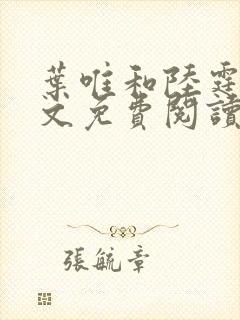 葉唯和陸霆
文免費閱讀
張毓章